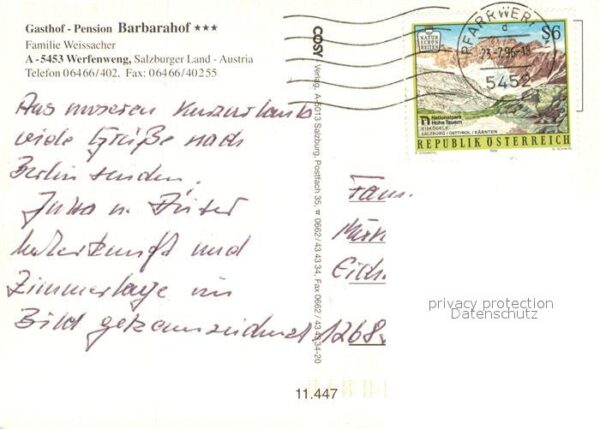 Gasthof - Pension Barbarahof ★★★
Familie Weissacher
A - 5453 Werfenweng, Salzburger Land - Austria
Telefon 06466/402, Fax: 06466/40255
Aus unserem Kurzurlaub
viele Grüße nach
Berlin senden.
Jutta u. Dieter
Unterkunft und
Zimmerlage im
Bild
COSY Verlag, A-5013 Salzburg, Postfach 35, ☎ 0662/43 43 34, Fax 0662 / 43 43 34-20
NATUR
PFARRWERFEN
d
23.-7.96-18
5452
S6
Nationalpark
Hohe Tauern
SALZBURG / OSTTIROL / KÄRNTEN
REPUBLIK ÖSTERREICH
Fam.
Eich
1268
privacy protection
Datenschutz
11.447